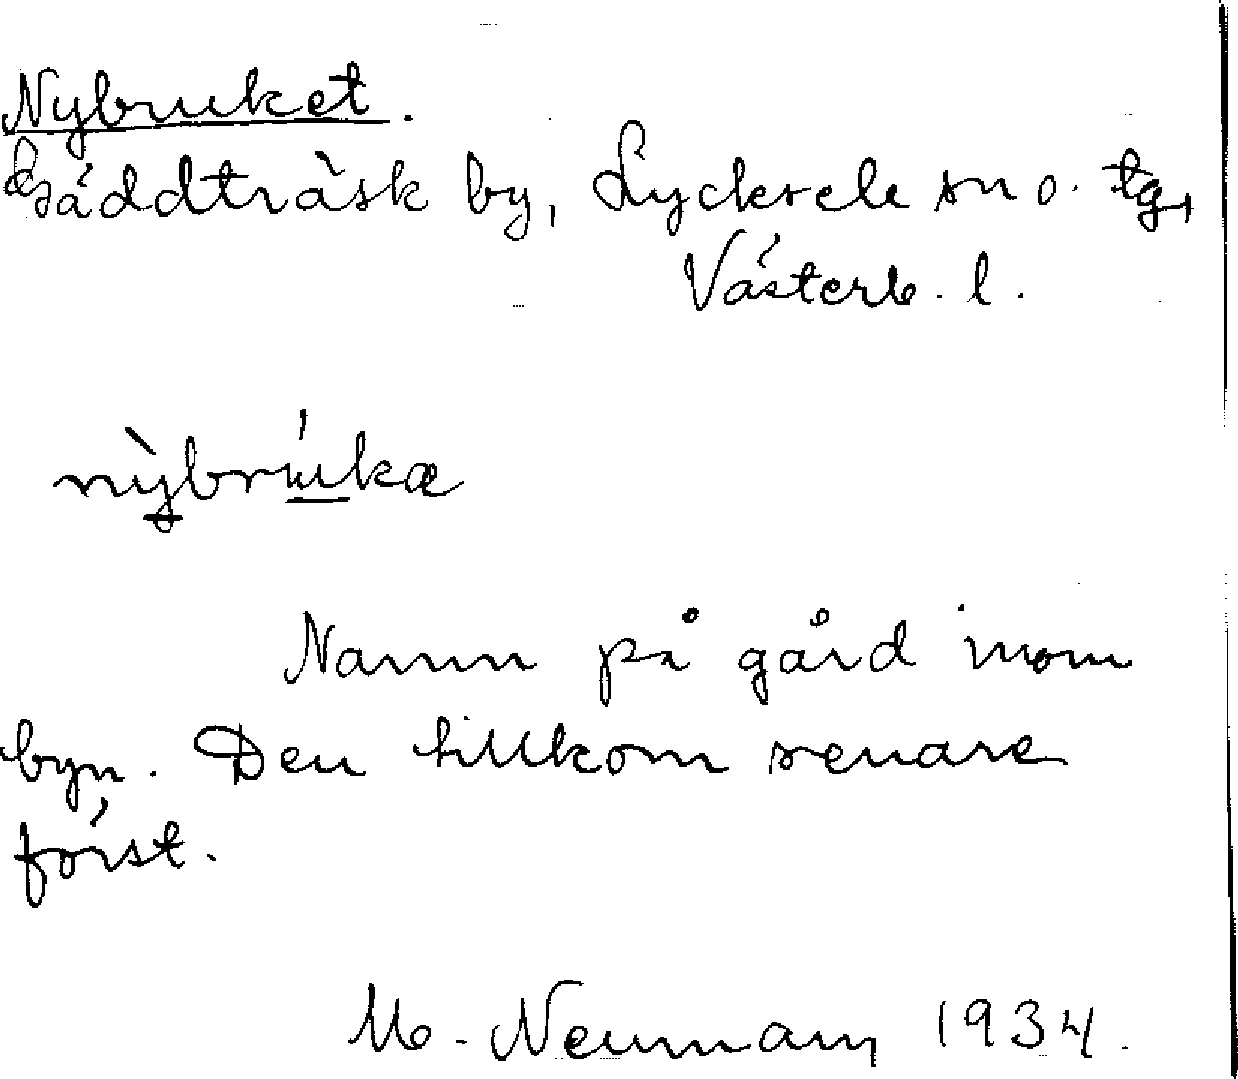 Nybruket.
Gäddträsk by, Lycksele sn o. tg,
Västerb. l.
nỳbrúka
Namn på gård inom
byn. Den tillkom senare
först.
M. Neumann 1934.